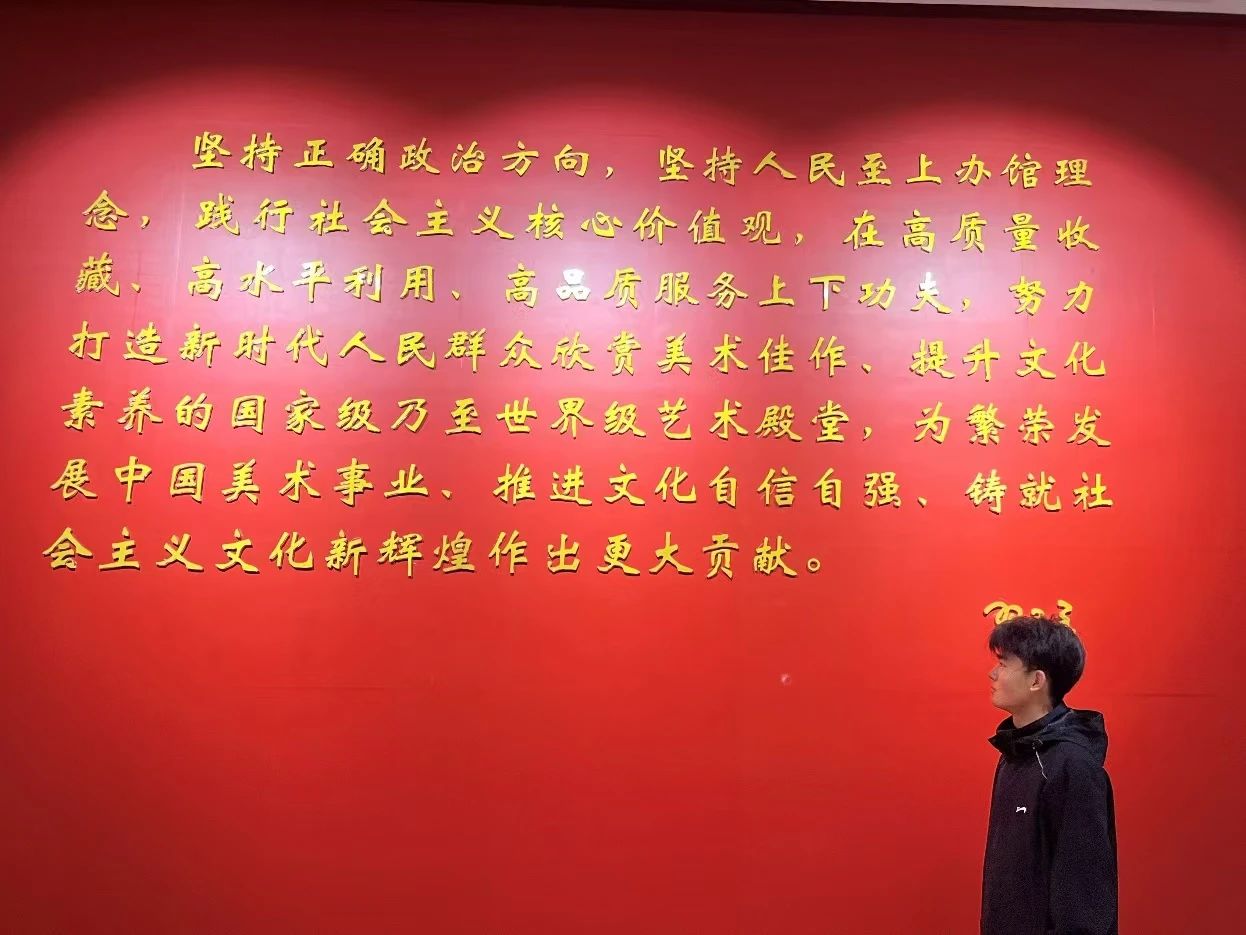 坚持正确政治方向，坚持人民至上办馆理
念，践行社会主义核心价值观，在高质量收
藏、高水平利用、高品质服务上下功夫，努力
打造新时代人民群众欣赏美术佳作、提升文化
素养的国家级乃至世界级艺术殿堂，为繁荣发
展中国美术事业、推进文化自信自强、铸就社
会主义文化新辉煌作出更大贡献。